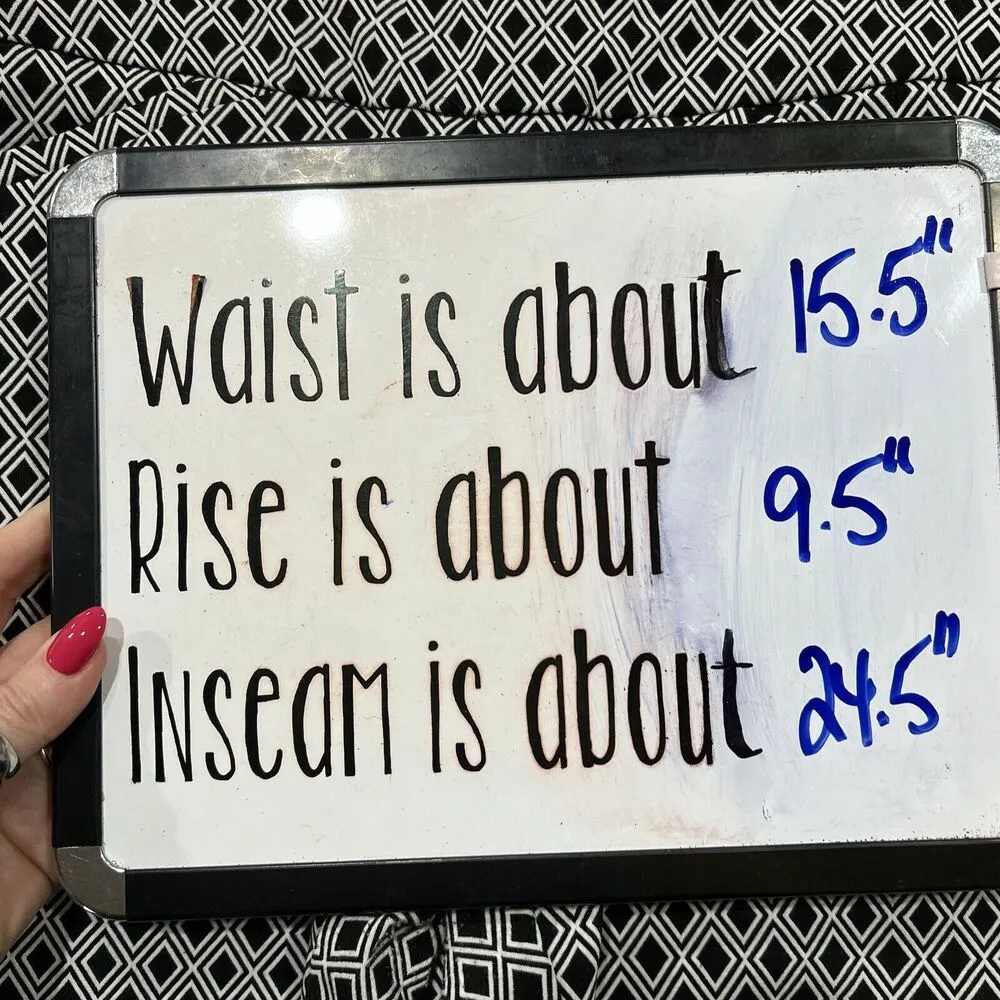 Waist is about 15.5"
Rise is about 9.5"
Inseam is about 24.5"